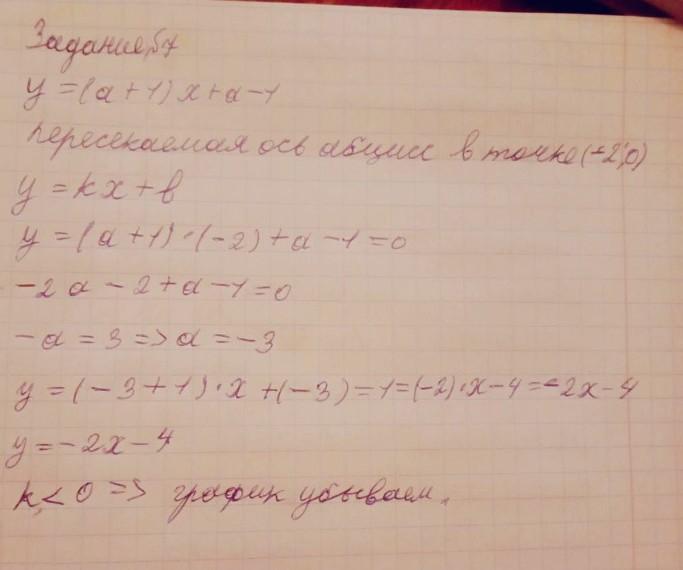 Задание 57
y = (a+1) x + a - 1
пересекаемая ось абцисс в точке (-2; 0)
y = kx + b
y = (a+1) · (-2) + a - 1 = 0
-2a - 2 + a - 1 = 0
-a = 3 => a = -3
y = (-3+1) · x + (-3) = 1 = (-2) · x - 4 = -2x - 4
y = -2x - 4
k < 0 => график убывает.